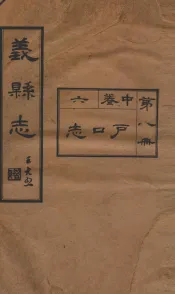 義縣志
第八冊
中卷
六
戶口志